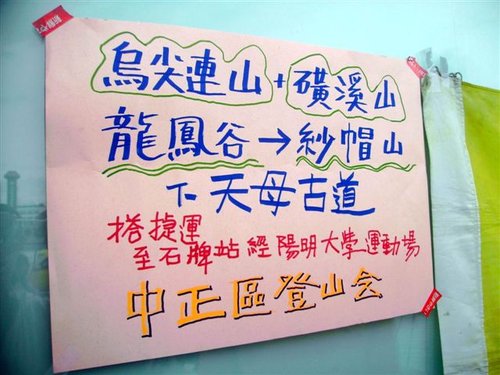 烏尖連山+磺溪山
龍鳳谷→紗帽山
下天母古道
搭捷運
至石牌站經陽明大學運動場
中正區登山会